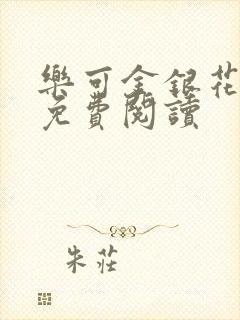 樂可金銀花
免費閱讀
朱莊